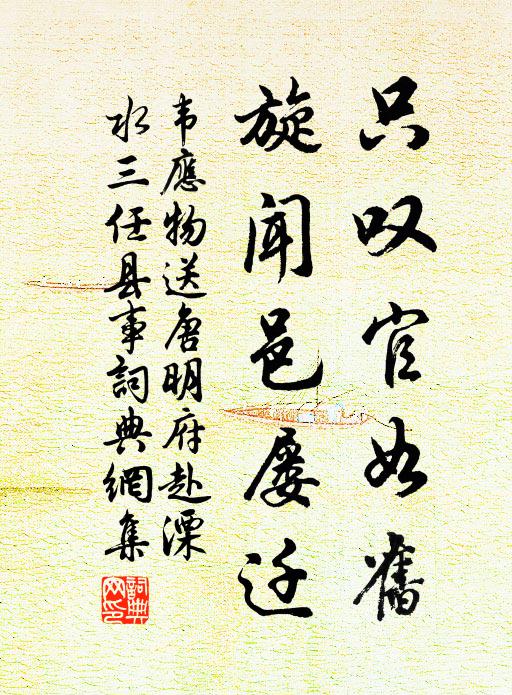 只叹官如舊
旋闻邑屡迁
韦應物送唐明府赴溧
水三任县事詞典網集
詞典
网印